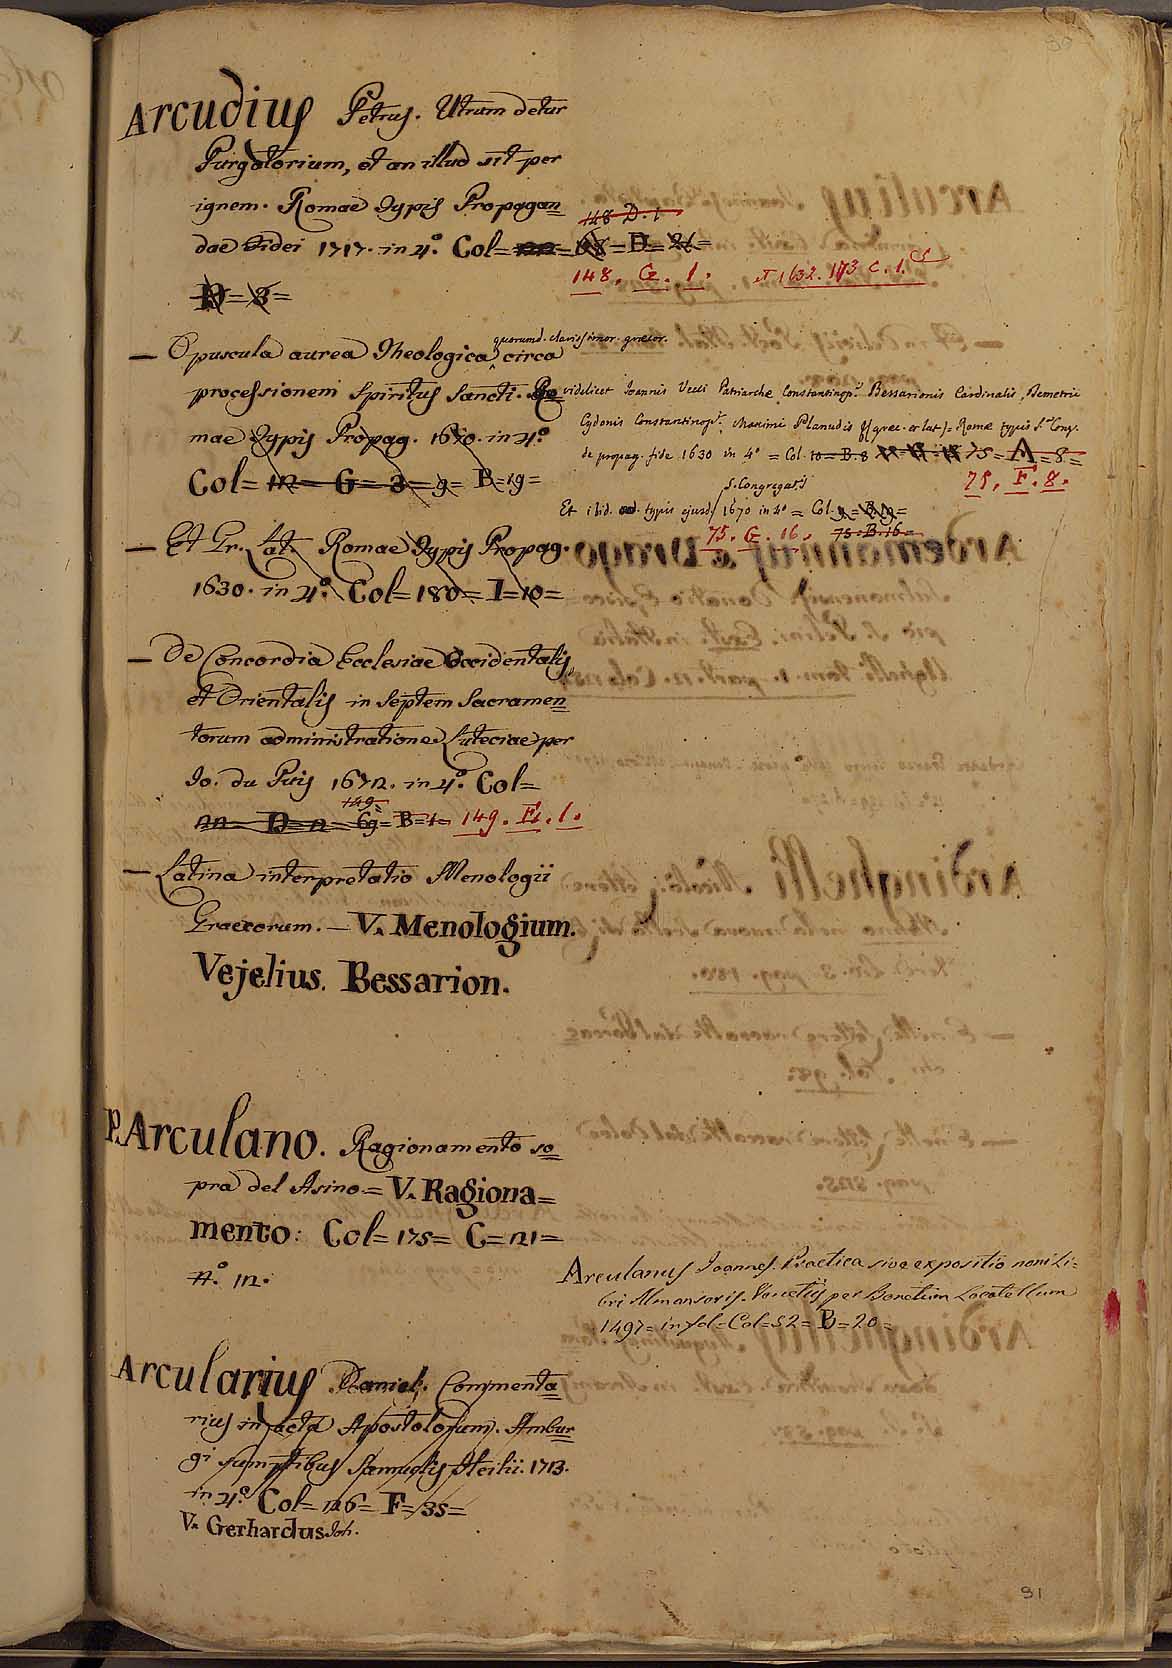 Arcudius Petrus. Utrum detur
Purgatorium, et an illud sit per
ignem. Romae Typis Propagan=
148 D. 1
dae Fidei 1717. in 4.° Col= = 68 = D = 26 =
148. G. 1. et 1632. 173 C. 1.
D = 3 =
— Opuscula aurea Theologica quorumd. clarissimor. graecor. circa
processionem Spiritus Sancti. Ro=
mae Typis Propag. 1670. in 4.°
Col= m = G = 3 = 9 = B=19=
videlicet Joannis Vecci Patriarche Constantinop. Bessarionis Cardinalis, Demetrii
Cydonis Constantinop. Maximi Planudis &c (graec. et lat.) = Romae typis S. Cong.
de propag. fide 1630 in 4° = Col. 10 = B. 8 75 = A = 8 =
75. F. 8.
S. Congregat.s
Et ibid. typis ejusd. 1670 in 4° = Col. 9 = B. 19 =
75. G. 16. 75. B. 16 =
— Et Gr. Lat. Romae Typis Propag.
1630. in 4.° Col= 180 = I = 10 =
— De Concordia Ecclesiae Occidentalis
et Orientalis in Septem Sacramen=
torum administratione. Luteciae per
Io. du Puis 1672. in 4.° Col=
149=
22 = D = 2 = 69 = B = 1 = 149. F. 1.
— Latina interpretatio Menologii
Graecorum. — V. Menologium.
Vejelius. Bessarion.
P. Arculano. Ragionamento so=
pra del Asino = V. Ragiona=
mento: Col= 175= C= 121=
n.° 12.
Arculanus Joannes. Practica sive expositio noni Li=
bri Almansoris. Venetijs per Bonetum Locatellum
1497= in fol= Col= 52= B= 20=
Arcularius Daniel. Commenta=
rius in acta Apostolorum. Ambur=
gi sumptibus Samuelis Heilii. 1713.
in 4.° Col= 126= F= 35=
V. Gerhardus Joh.
91